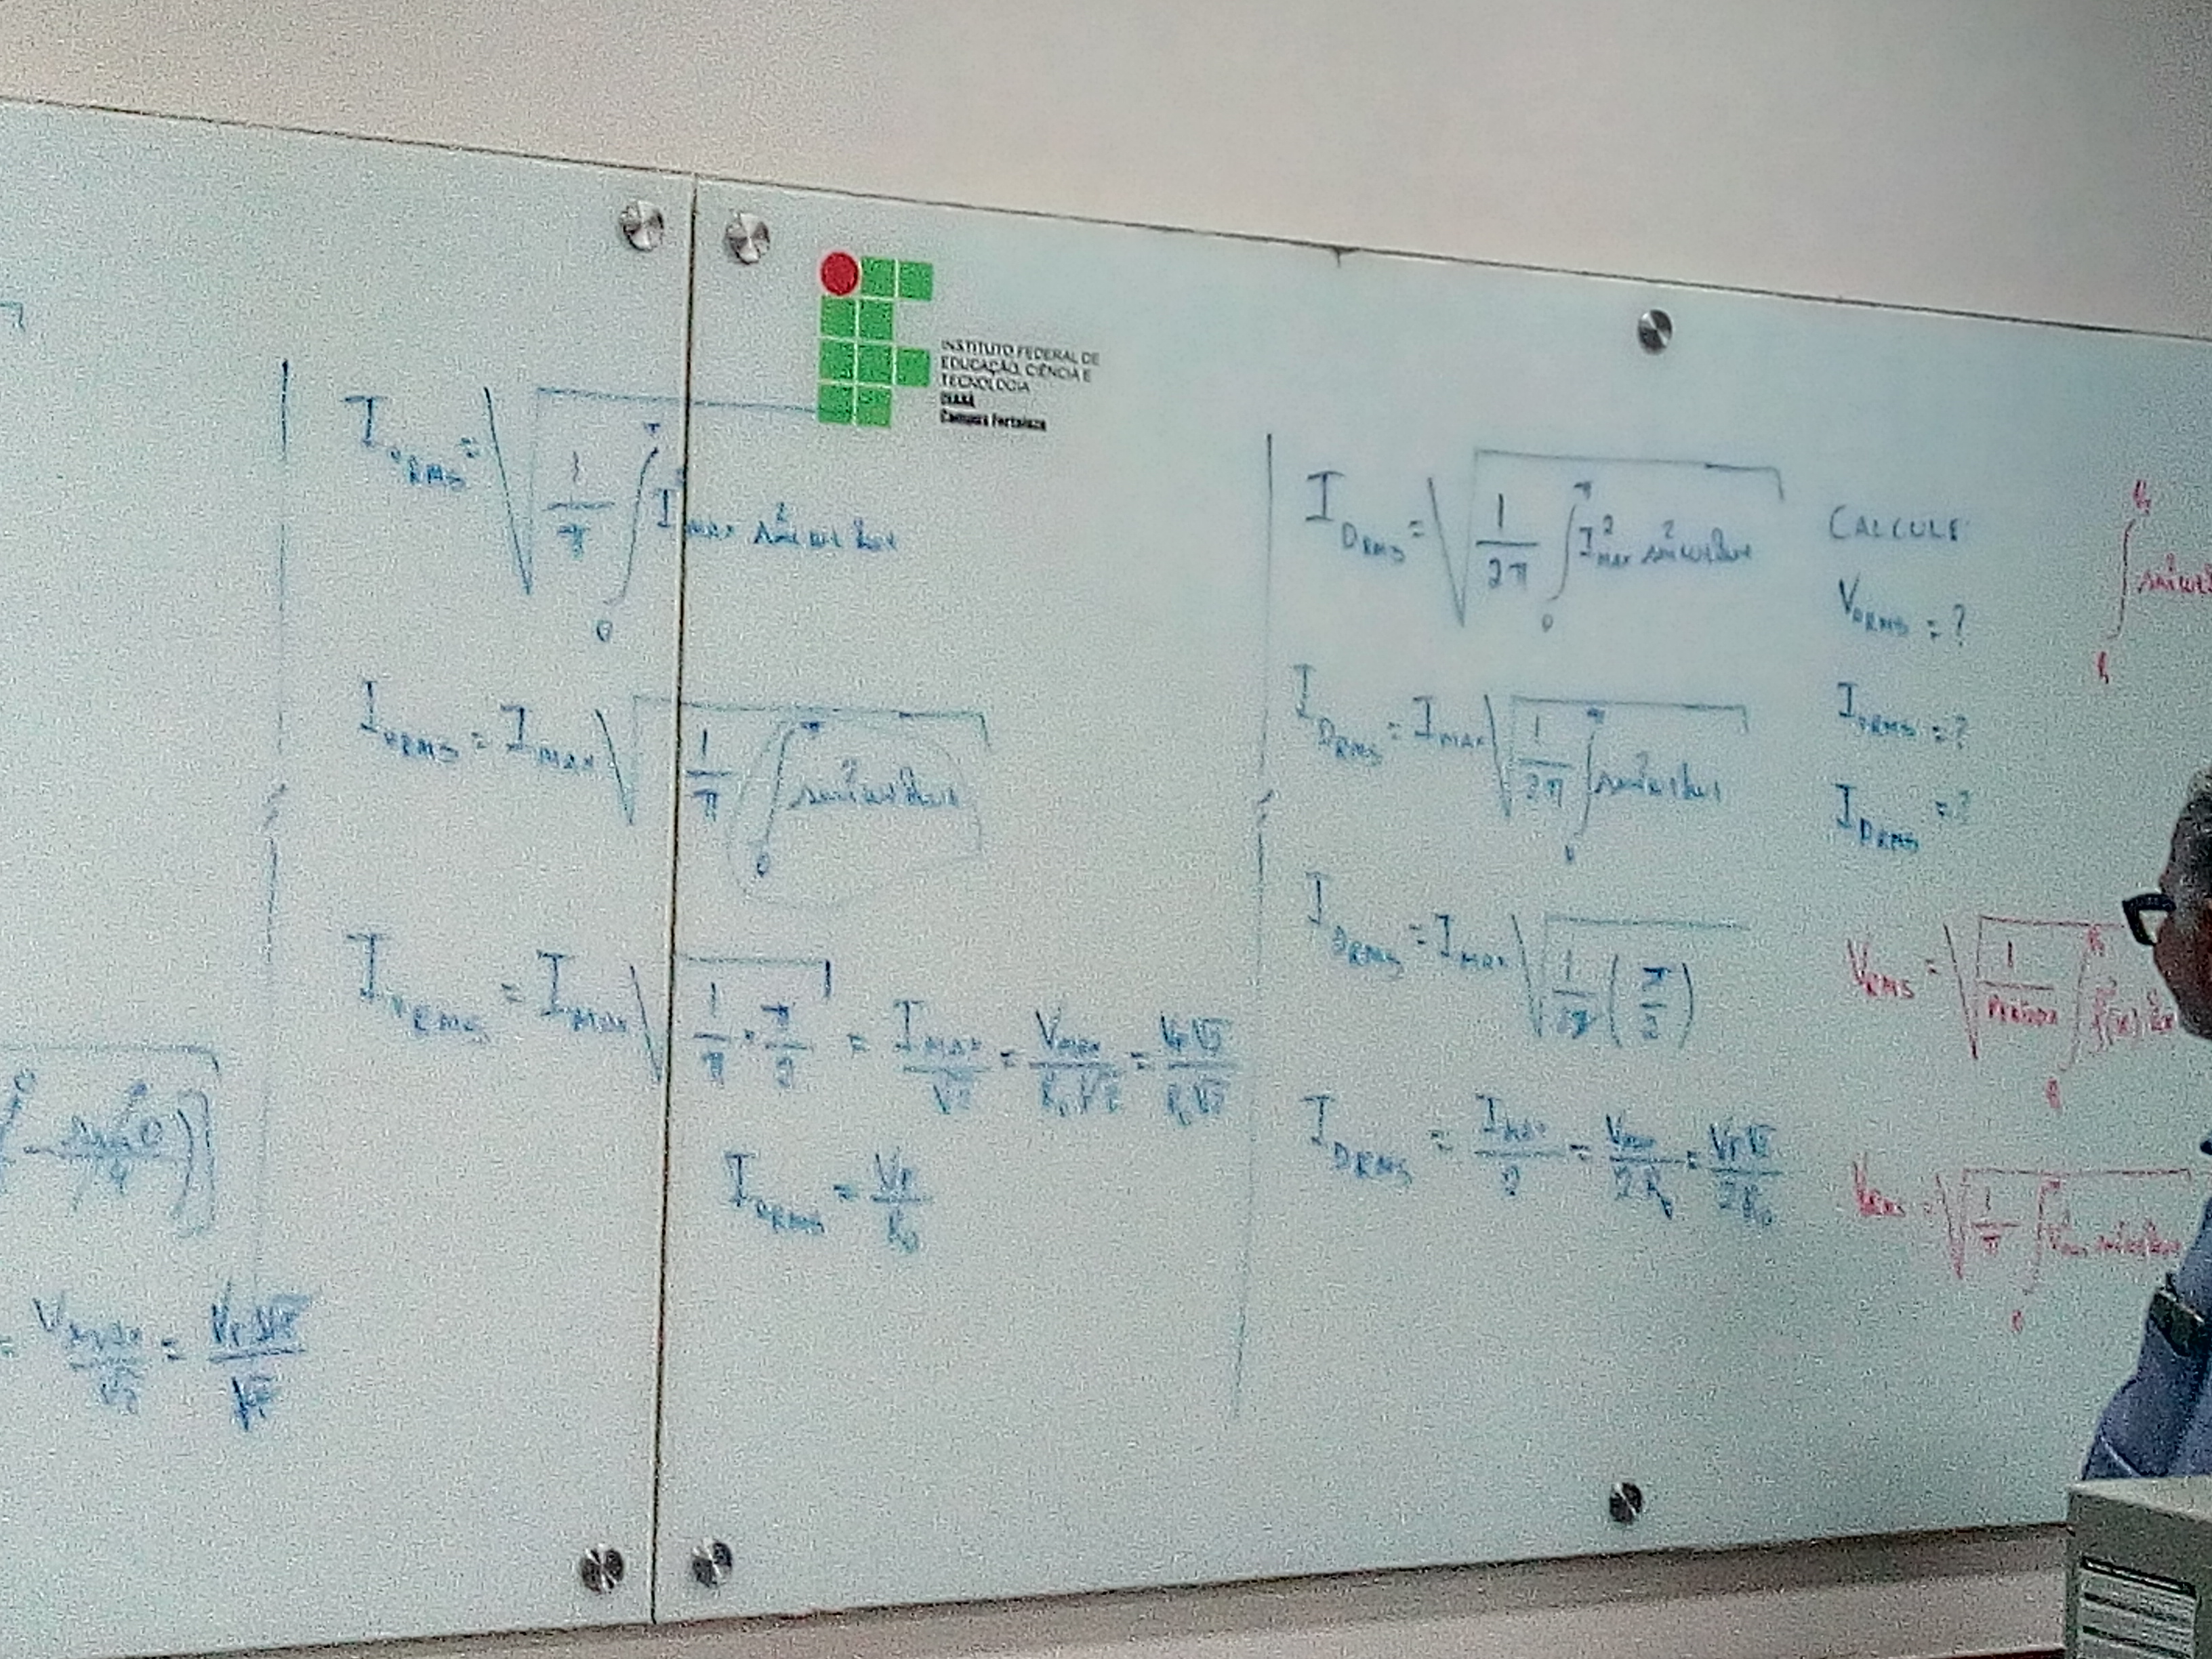 INSTITUTO FEDERAL DE
EDUCAÇÃO, CIÊNCIA E
TECNOLOGIA
CEARÁ
Campus Fortaleza
= Vmax/√2 = VF√2/√2
IoRMS = √(1/π ∫₀^π I²max sen²ωt dωt)
IoRMS = Imax √(1/π ∫₀^π sen²ωt dωt)
IoRMS = Imax √(1/π · π/2) = Imax/√2 = Vmax/(Ro√2) = VF√2/(Ro√2)
IoRMS = VF/Ro
IDRMS = √(1/2π ∫₀^π I²max sen²ωt dωt)
IDRMS = Imax √(1/2π ∫₀^π sen²ωt dωt)
IDRMS = Imax √(1/2π (π/2))
IDRMS = Imax/2 = Vmax/2Ro = VF√2/2Ro
CALCULE
VoRMS = ?
IoRMS = ?
IDRMS = ?
VRMS = √(1/Período ∫ f²(x) dx
VRMS = √(1/π ∫₀^π V²max sen²ωt dωt